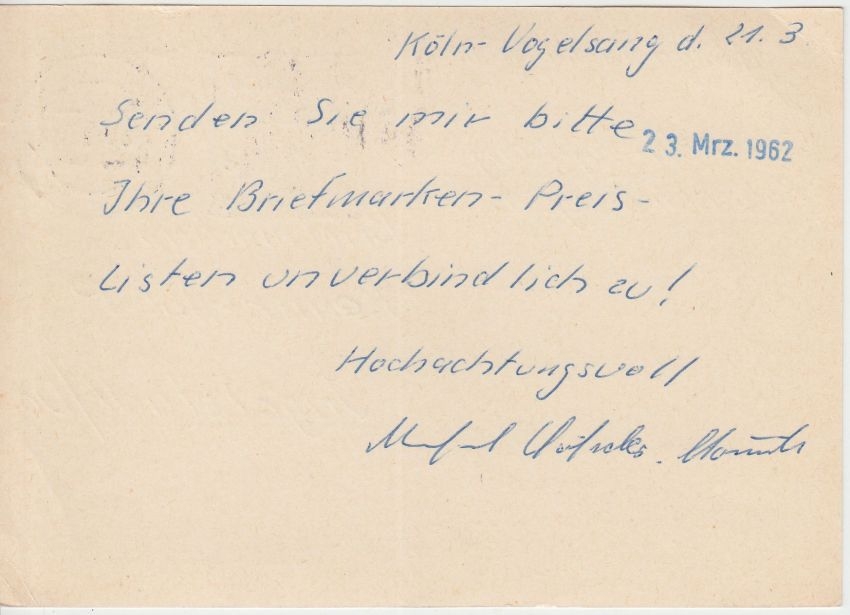 Köln-Vogelsang d. 21. 3.
Senden Sie mir bitte
23. Mrz. 1962
Ihre Briefmarken-Preis-
Listen unverbindlich zu!
Hochachtungsvoll